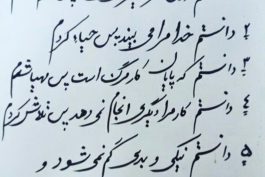 ۲ دانستم خدا مرا می بیند پس حیا کردم
۳ دانستم که پایان کارم مرگ است پس مهیا شدم
۴ دانستم کار مرا دیگری انجام نمی دهد پس تلاش کردم
۵ دانستم نیکی و بدی گم نمی شود و